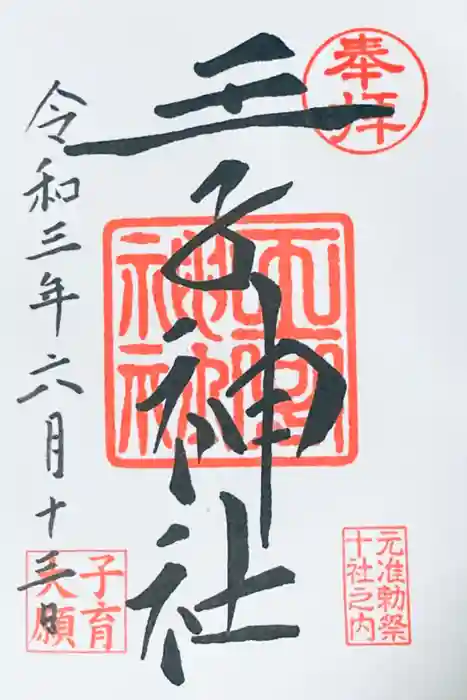 奉拝
王子神社
元准勅祭
十社之内
令和三年六月十三日
子育
大願